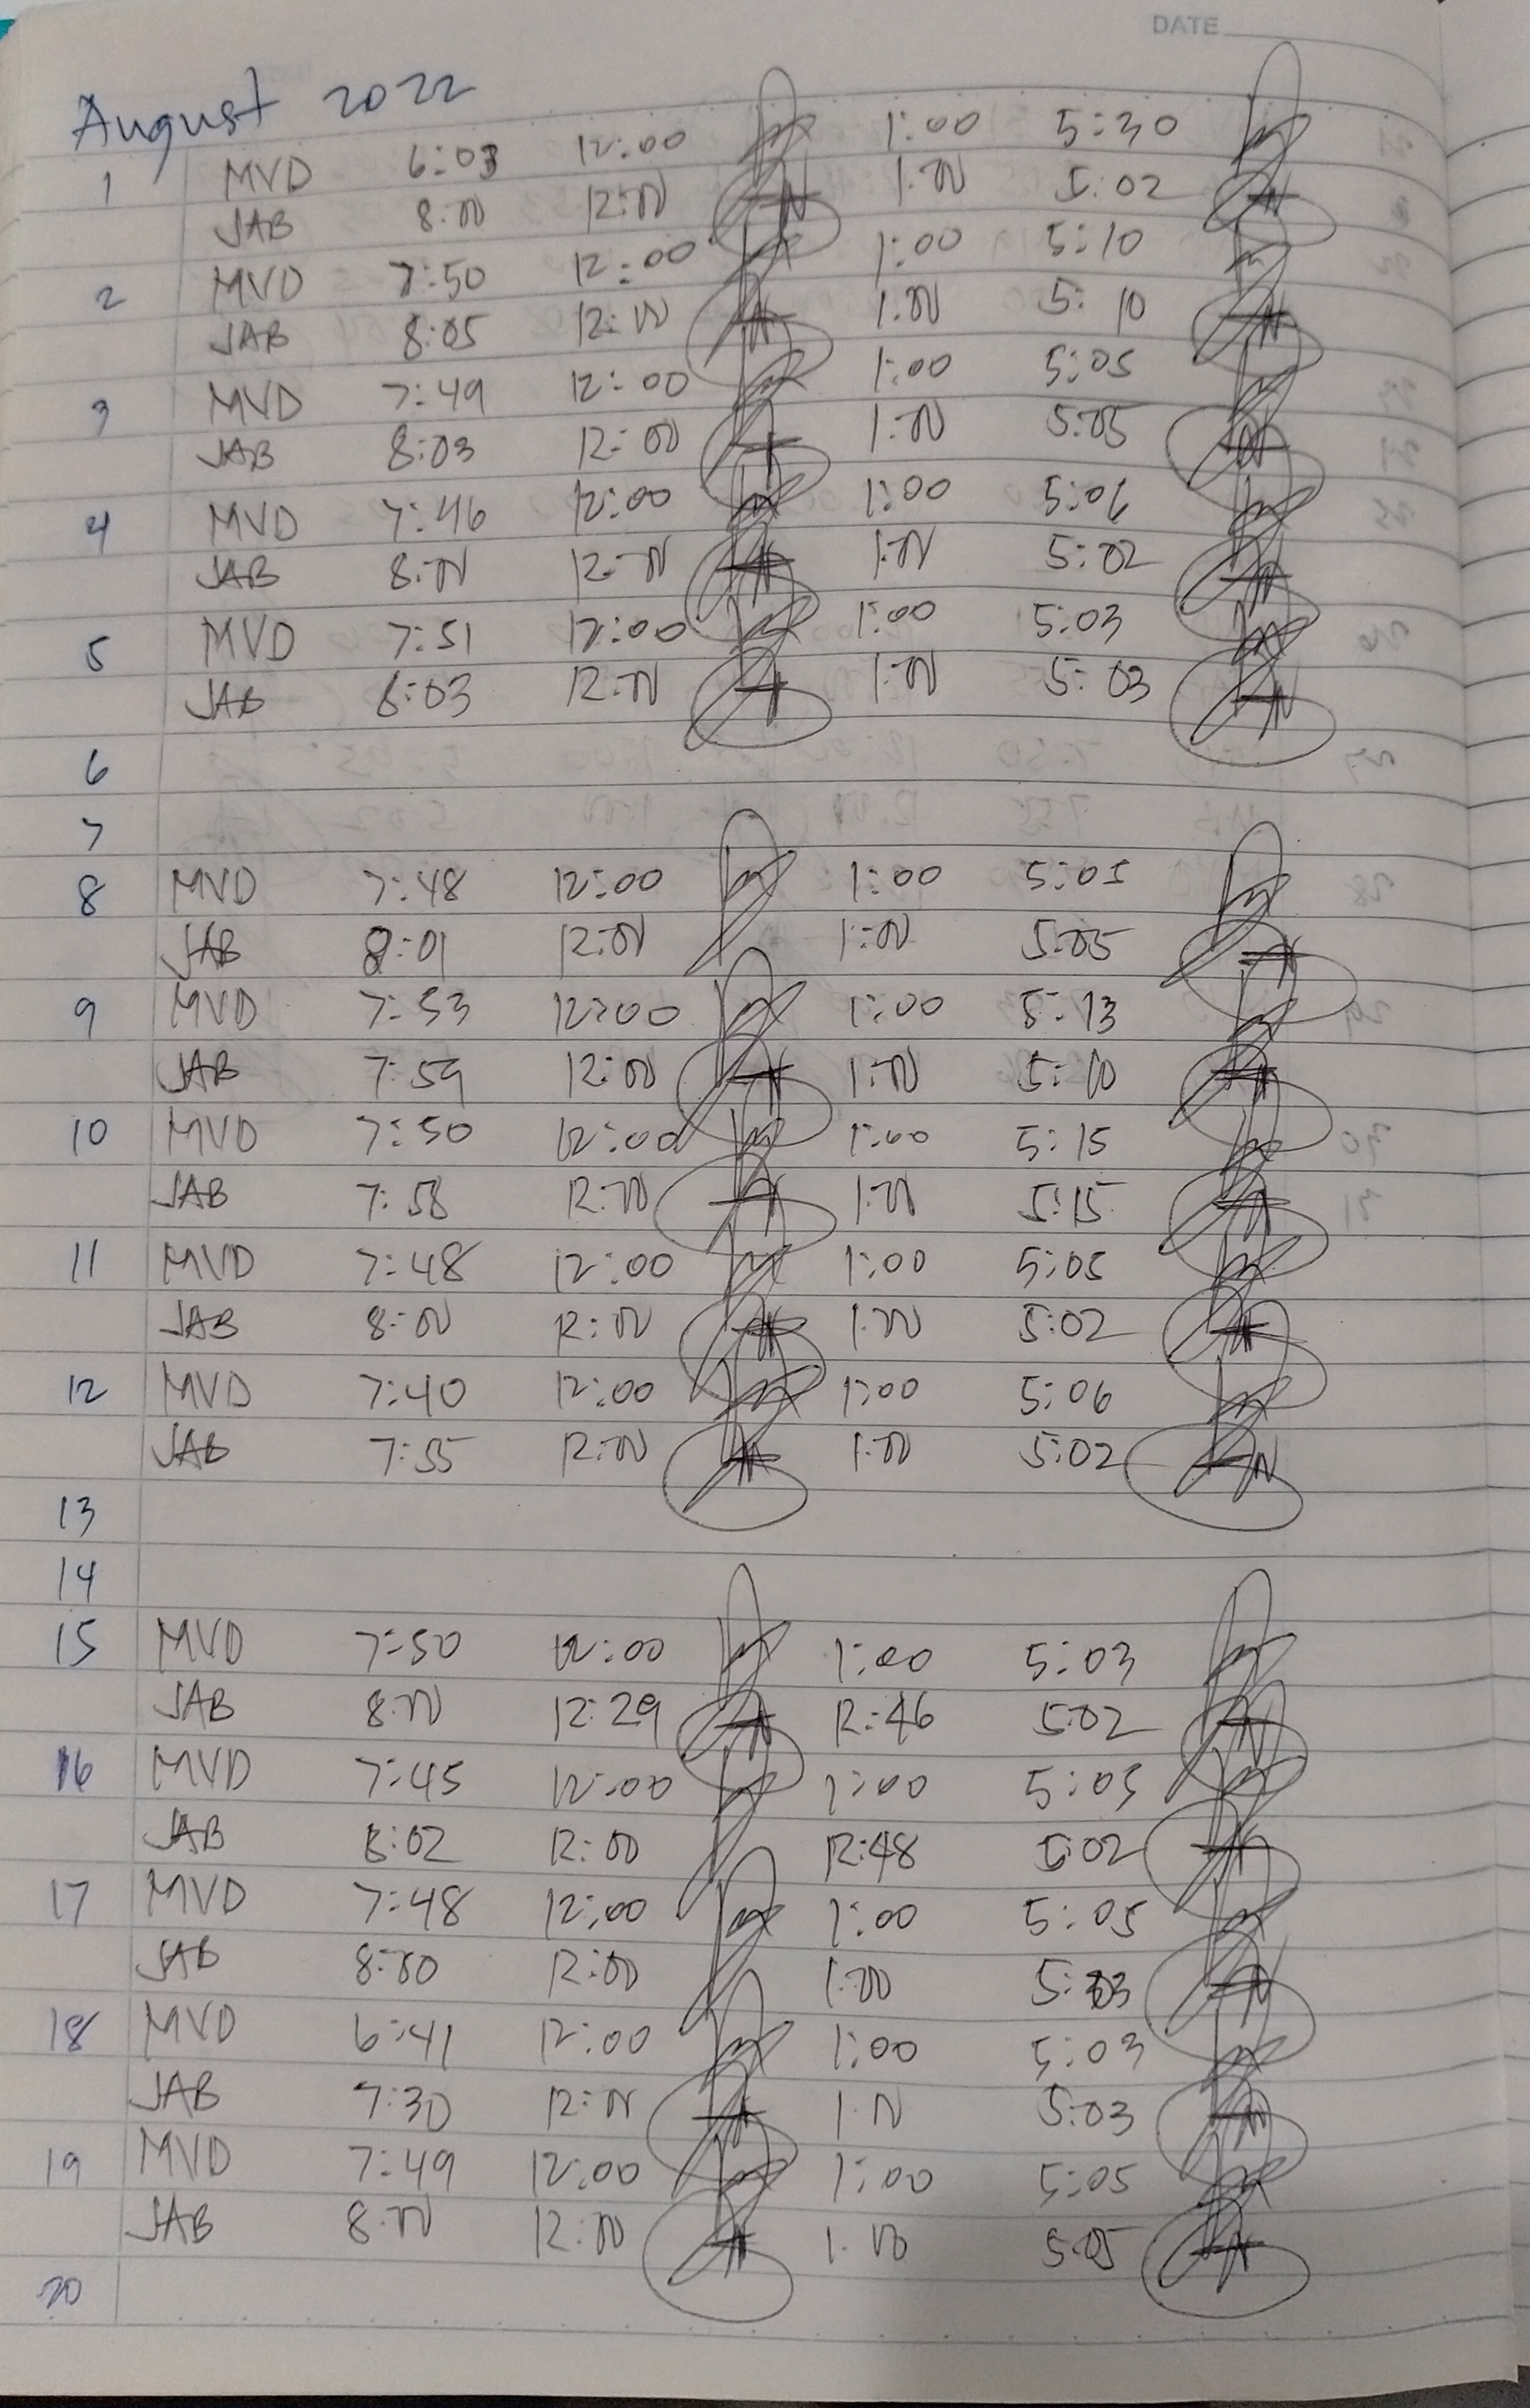 DATE
August 2022
1 MVD 6:03 12:00 1:00 5:30
JAB 8:00 12:00 1:00 5:02
2 MVD 7:50 12:00 1:00 5:10
JAB 8:05 12:00 1:00 5:10
3 MVD 7:49 12:00 1:00 5:05
JAB 8:03 12:00 1:00 5:05
4 MVD 7:46 12:00 1:00 5:06
JAB 8:00 12:00 1:00 5:02
5 MVD 7:51 12:00 1:00 5:03
JAB 8:03 12:00 1:00 5:03
6
7
8 MVD 7:48 12:00 1:00 5:05
JAB 8:01 12:00 1:00 5:05
9 MVD 7:53 12:00 1:00 5:13
JAB 7:59 12:00 1:00 5:10
10 MVD 7:50 12:00 1:00 5:15
JAB 7:58 12:00 1:00 5:15
11 MVD 7:48 12:00 1:00 5:05
JAB 8:00 12:00 1:00 5:02
12 MVD 7:40 12:00 1:00 5:06
JAB 7:55 12:00 1:00 5:02
13
14
15 MVD 7:50 12:00 1:00 5:03
JAB 8:00 12:29 12:46 5:02
16 MVD 7:45 12:00 1:00 5:05
JAB 8:02 12:00 12:48 5:02
17 MVD 7:48 12:00 1:00 5:05
JAB 8:00 12:00 1:00 5:03
18 MVD 6:41 12:00 1:00 5:03
JAB 7:30 12:00 1:00 5:03
19 MVD 7:49 12:00 1:00 5:05
JAB 8:00 12:00 1:00 5:05
20